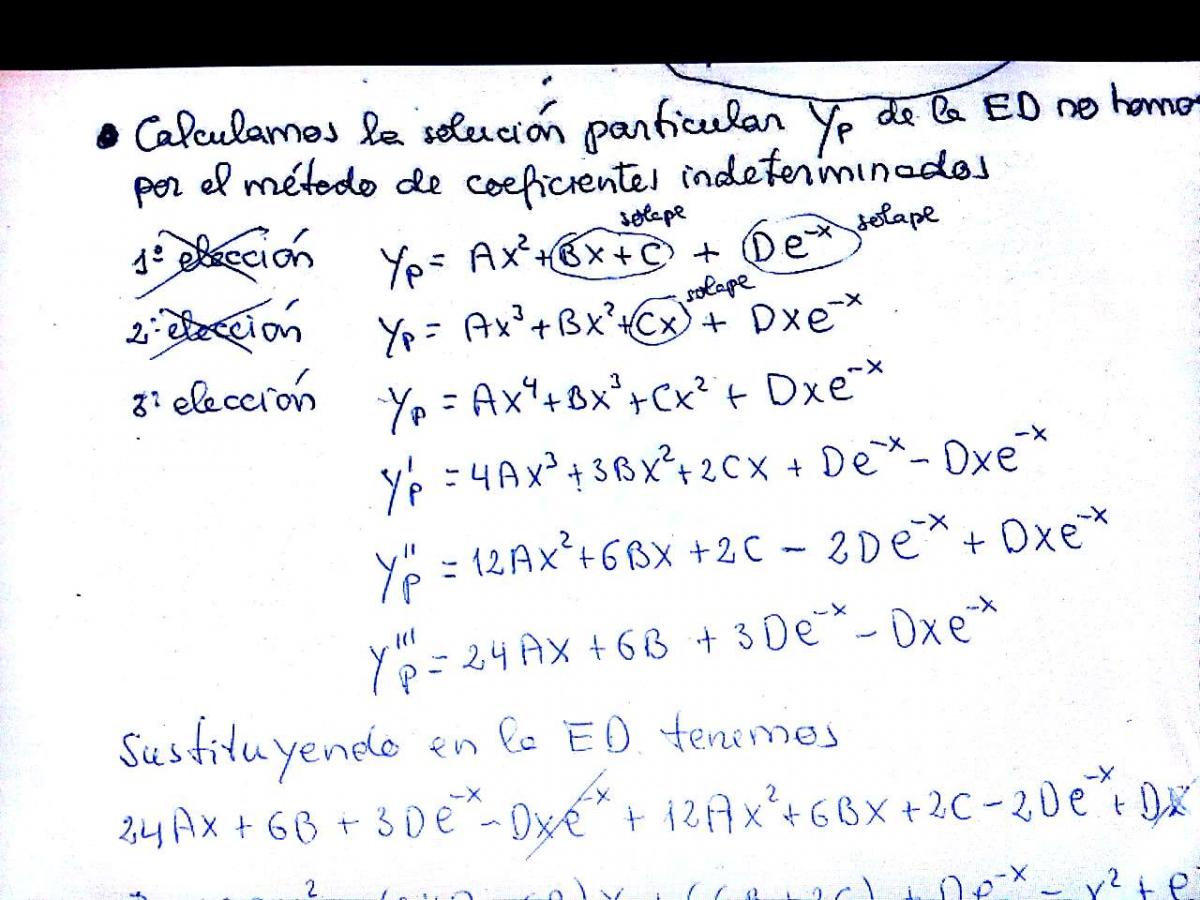 • Calculamos la solución particular Yp de la ED no homo
por el método de coeficientes indeterminados
solape
solape
1ª elección Yp = Ax² + Bx + C + De⁻ˣ
solape
2ª elección Yp = Ax³ + Bx² + Cx + Dxe⁻ˣ
3ª elección Yp = Ax⁴ + Bx³ + Cx² + Dxe⁻ˣ
Y'p = 4Ax³ + 3Bx² + 2Cx + De⁻ˣ - Dxe⁻ˣ
Y''p = 12Ax² + 6Bx + 2C - 2De⁻ˣ + Dxe⁻ˣ
Y'''p = 24Ax + 6B + 3De⁻ˣ - Dxe⁻ˣ
Sustituyendo en la ED tenemos
24Ax + 6B + 3De⁻ˣ - Dxe⁻ˣ + 12Ax² + 6Bx + 2C - 2De⁻ˣ + Dx